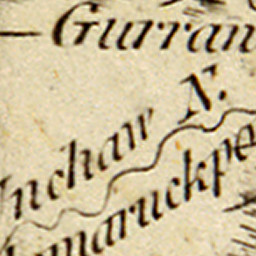 Gurran
Inchaw N.
maruckpe